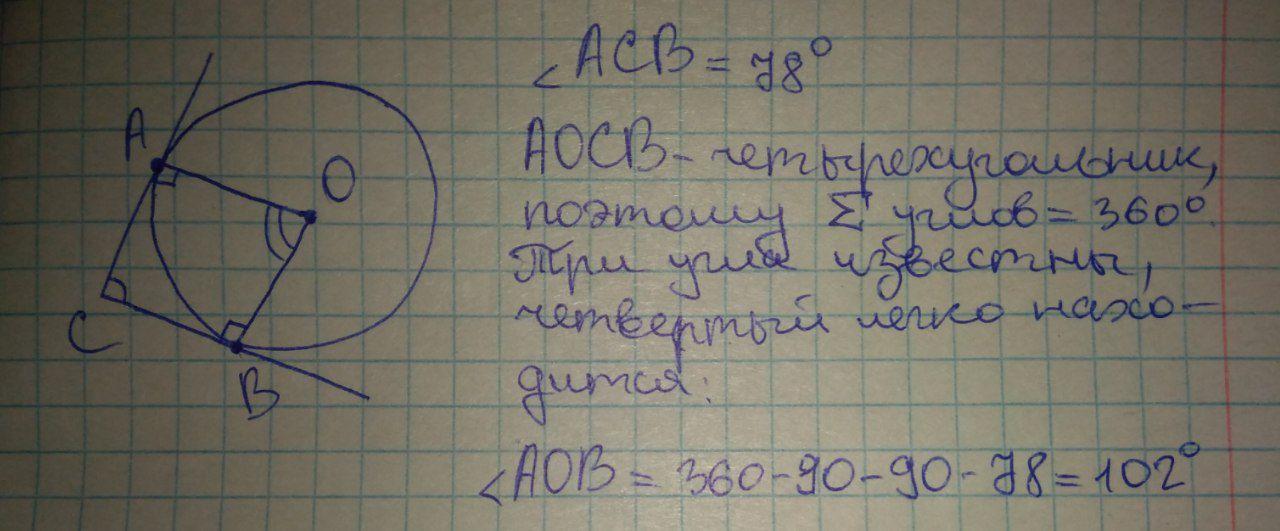 ∠ACB = 78°
A
O
AOCB - четырехугольник,
поэтому Σ углов = 360°.
Три угла известны,
C
четвертый легко нахо-
дится:
B
∠AOB = 360-90-90-78=102°